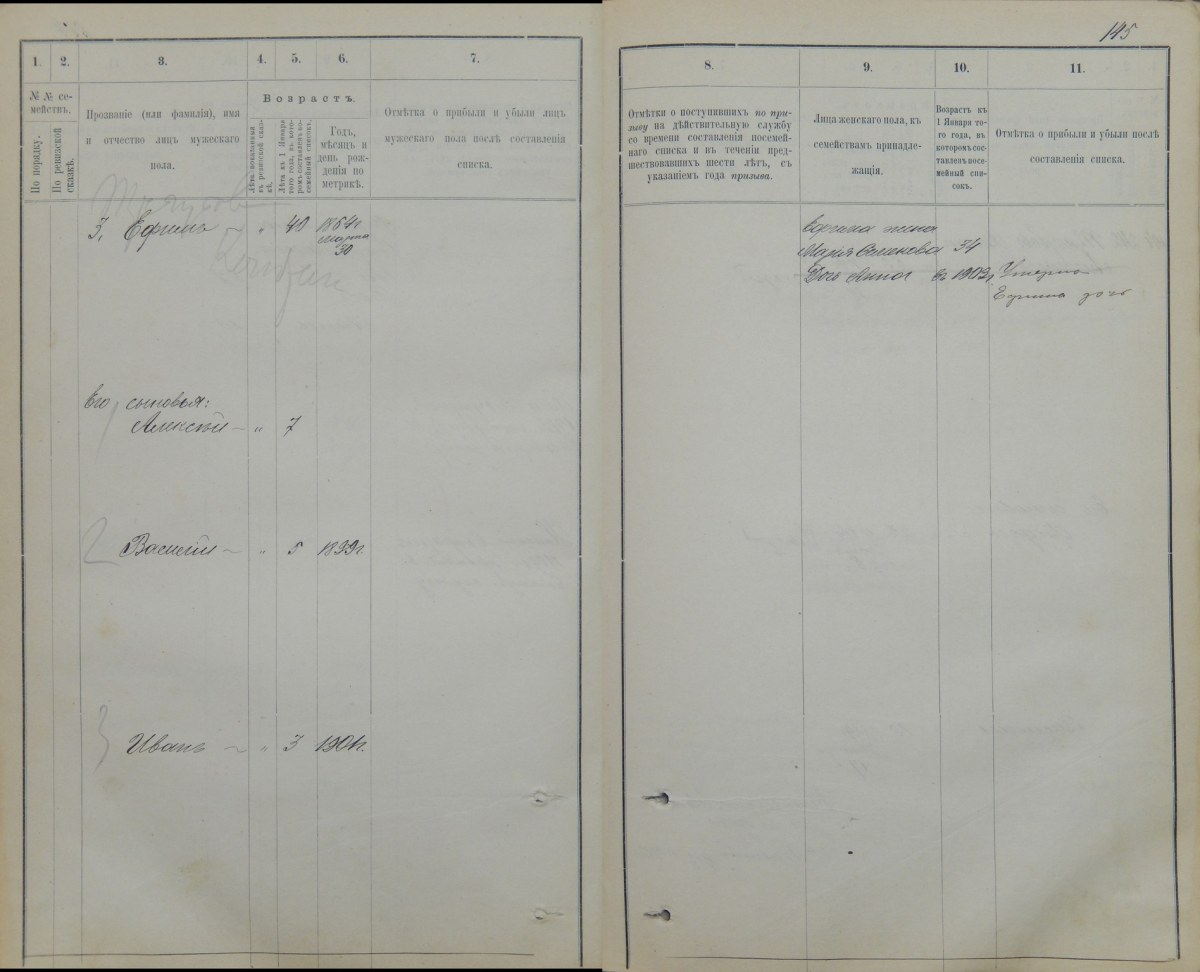 145
1.
2.
3.
4.
5.
6.
7.
№ № се-
мействъ.
По порядку.
По ревизской
сказкѣ.
Прозваніе (или фамилія), имя
и отчество лицъ мужескаго
пола.
Возрастъ.
Лѣта показанныя
въ ревизской сказ-
кѣ.
Лѣта къ 1 Января
того года, въ кото-
ромъ составленъ по-
семейный списокъ.
Годъ,
мѣсяцъ и
день рож-
денія по
метрикѣ.
Отмѣтка о прибыли и убыли лицъ
мужескаго пола послѣ составленія
списка.
3. Ефимъ " 40 1864г
марта
30
Его сыновья:
Алексѣй — " 7
Василій — " 5 1899г.
Иванъ — " 3 1901г.
8.
9.
10.
11.
Отмѣтки о поступившихъ по при-
зыву на дѣйствительную службу
со времени составленія посемей-
наго списка и въ теченіи пред-
шествовавшихъ шести лѣтъ, съ
указаніемъ года призыва.
Лица женскаго пола, къ
семействамъ принадле-
жащія.
Возрастъ къ
1 Января то-
го года, въ
которомъ сос-
тавленъ посе-
мейный спи-
сокъ.
Отмѣтка о прибыли и убыли послѣ
составленія списка.
Ефима жена
Марія Семенова 34
Дочь Анна въ 1902г. Умерла
Ефима дочь